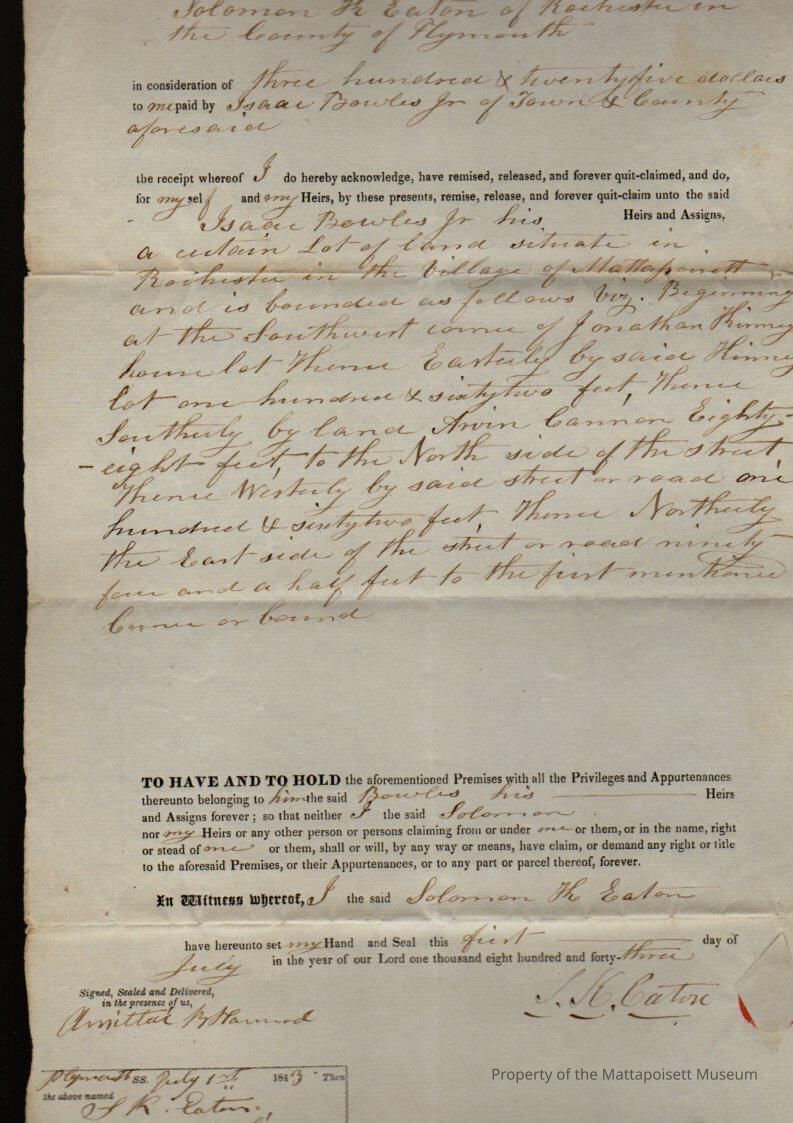 Solomon K Eaton of Rochester in
the County of Plymouth
in consideration of three hundred & twentyfive dollars
to me paid by Isaac Bowles Jr of Town & County
aforesaid
the receipt whereof I do hereby acknowledge, have remised, released, and forever quit-claimed, and do,
for my self and my Heirs, by these presents, remise, release, and forever quit-claim unto the said
Isaac Bowles Jr his Heirs and Assigns,
a certain Lot of land situate in
Rochester in the Village of Mattapoisett
and is bounded as follows Viz. Beginning
at the Southwest corner of Jonathan Kinney
house lot Thence Easterly by said Kinney
lot one hundred & sixtytwo feet, Thence
Southerly by land Arvin Cannon Eighty-
-eight feet, to the North side of the street
Thence Westerly by said street or road one
hundred & sixtytwo feet, Thence Northerly
the East side of the street or road ninety-
four and a half feet to the first mentioned
Corner or bound
TO HAVE AND TO HOLD the aforementioned Premises with all the Privileges and Appurtenances
thereunto belonging to him the said Bowles his Heirs
and Assigns forever; so that neither I the said Solomon
nor my Heirs or any other person or persons claiming from or under me or them, or in the name, right
or stead of me or them, shall or will, by any way or means, have claim, or demand any right or title
to the aforesaid Premises, or their Appurtenances, or to any part or parcel thereof, forever.
In Witness whereof, I the said Solomon K Eaton
have hereunto set my Hand and Seal this first day of
July in the year of our Lord one thousand eight hundred and forty-three
Signed, Sealed and Delivered,
in the presence of us,
S. K. Eaton
Amittai B Hammond
Plymouth SS. July 1st 1843 Then
the above named
S K. Eaton
Property of the Mattapoisett Museum